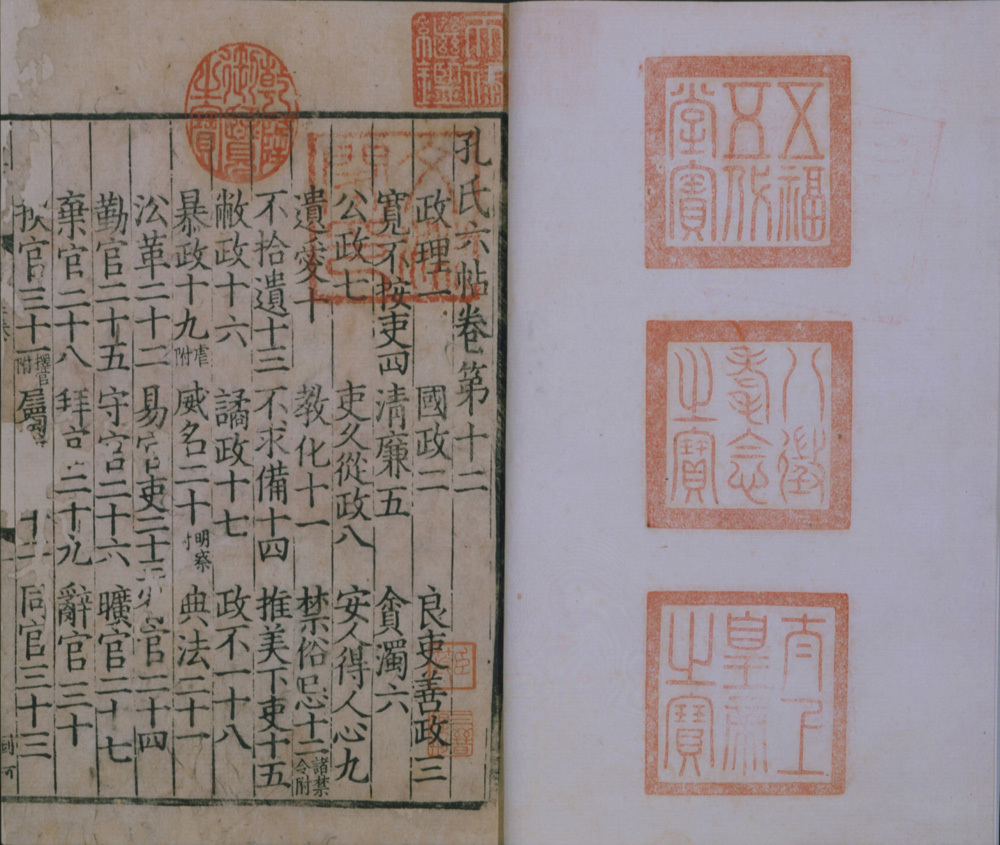 五福五代堂寶
八徵耄念之寶
太上皇帝之寶
天祿繼鑑
乾隆御覽之寶
孔氏六帖卷第十二
政理一 國政二 良吏善政三
寬不按吏四 清廉五 貪濁六
公政七 吏久從政八 安人得人心九
遺愛十 教化十一 禁俗忌十二諸禁令附
不拾遺十三 不求備十四 推美下吏十五
敝政十六 譎政十七 政不一十八
暴政十九虐附 威名二十明察 典法二十一
沿革二十二 易官吏二十三 官二十四
勤官二十五 守官二十六 曠官二十七
棄官二十八 拜官二十九 辭官三十
官三十一擇官附 同官三十三